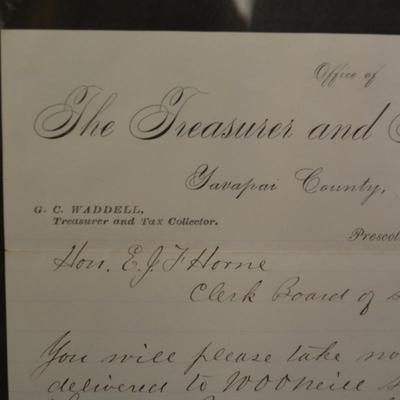 Office of
The Treasurer and
Yavapai County,
G. C. WADDELL,
Treasurer and Tax Collector.
Prescot
Hon. E. J. F Horne
Clerk Board of S
You will please take no
delivered to W O O'Neill